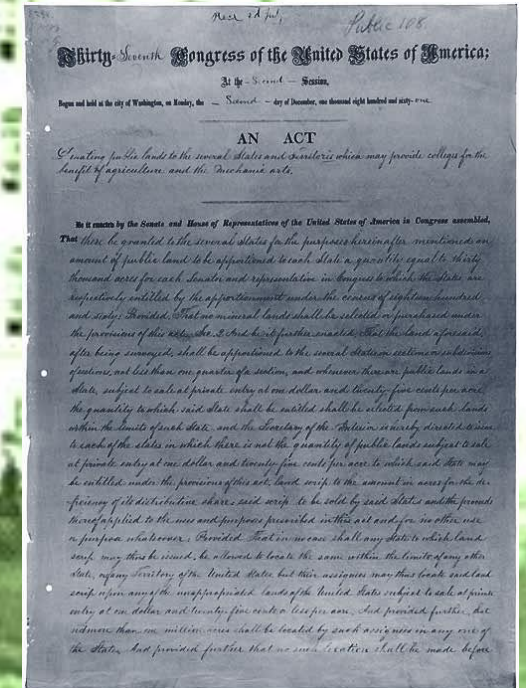 Public 108
Thirty-Seventh Congress of the United States of America;
At the - Second - Session,
Begun and held at the city of Washington, on Monday, the - Second - day of December, one thousand eight hundred and sixty-one
AN ACT
Donating public lands to the several States and Territories which may provide colleges for the
benefit of agriculture and the Mechanic arts.
Be it enacted by the Senate and House of Representatives of the United States of America in Congress assembled,
That there be granted to the several States for the purposes hereinafter mentioned an
amount of public land to be apportioned to each State a quantity equal to thirty
thousand acres for each Senator and representative in Congress to which the States are
respectively entitled by the apportionment under the census of eighteen hundred
and sixty: Provided, That no mineral lands shall be selected or purchased under
the provisions of this act. Sec. 2. And be it further enacted, That the land aforesaid,
after being surveyed, shall be apportioned to the several States in sections or subdivisions
of sections, not less than one quarter of a section; and whenever there are public lands in a
State, subject to sale at private entry at one dollar and twenty-five cents per acre,
the quantity to which said State shall be entitled shall be selected from such lands
within the limits of such State, and the Secretary of the Interior is hereby directed to issue
to each of the states in which there is not the quantity of public lands subject to sale
at private entry at one dollar and twenty-five cents per acre, to which said State may
be entitled under the provisions of this act, land scrip to the amount in acres for the de-
ficiency of its distributive share: said scrip to be sold by said States and the proceeds
thereof applied to the uses and purposes prescribed in this act and for no other use
or purpose whatsoever: Provided That in no case shall any State to which land
scrip may thus be issued, be allowed to locate the same within the limits of any other
State, or of any Territory of the United States but their assignees may thus locate said land
scrip upon any of the unappropriated lands of the United States subject to sale at private
entry at one dollar and twenty-five cents or less per acre. And provided further, that
not more than one million acres shall be located by such assignees in any one of
the States, And provided further that no such location shall be made before